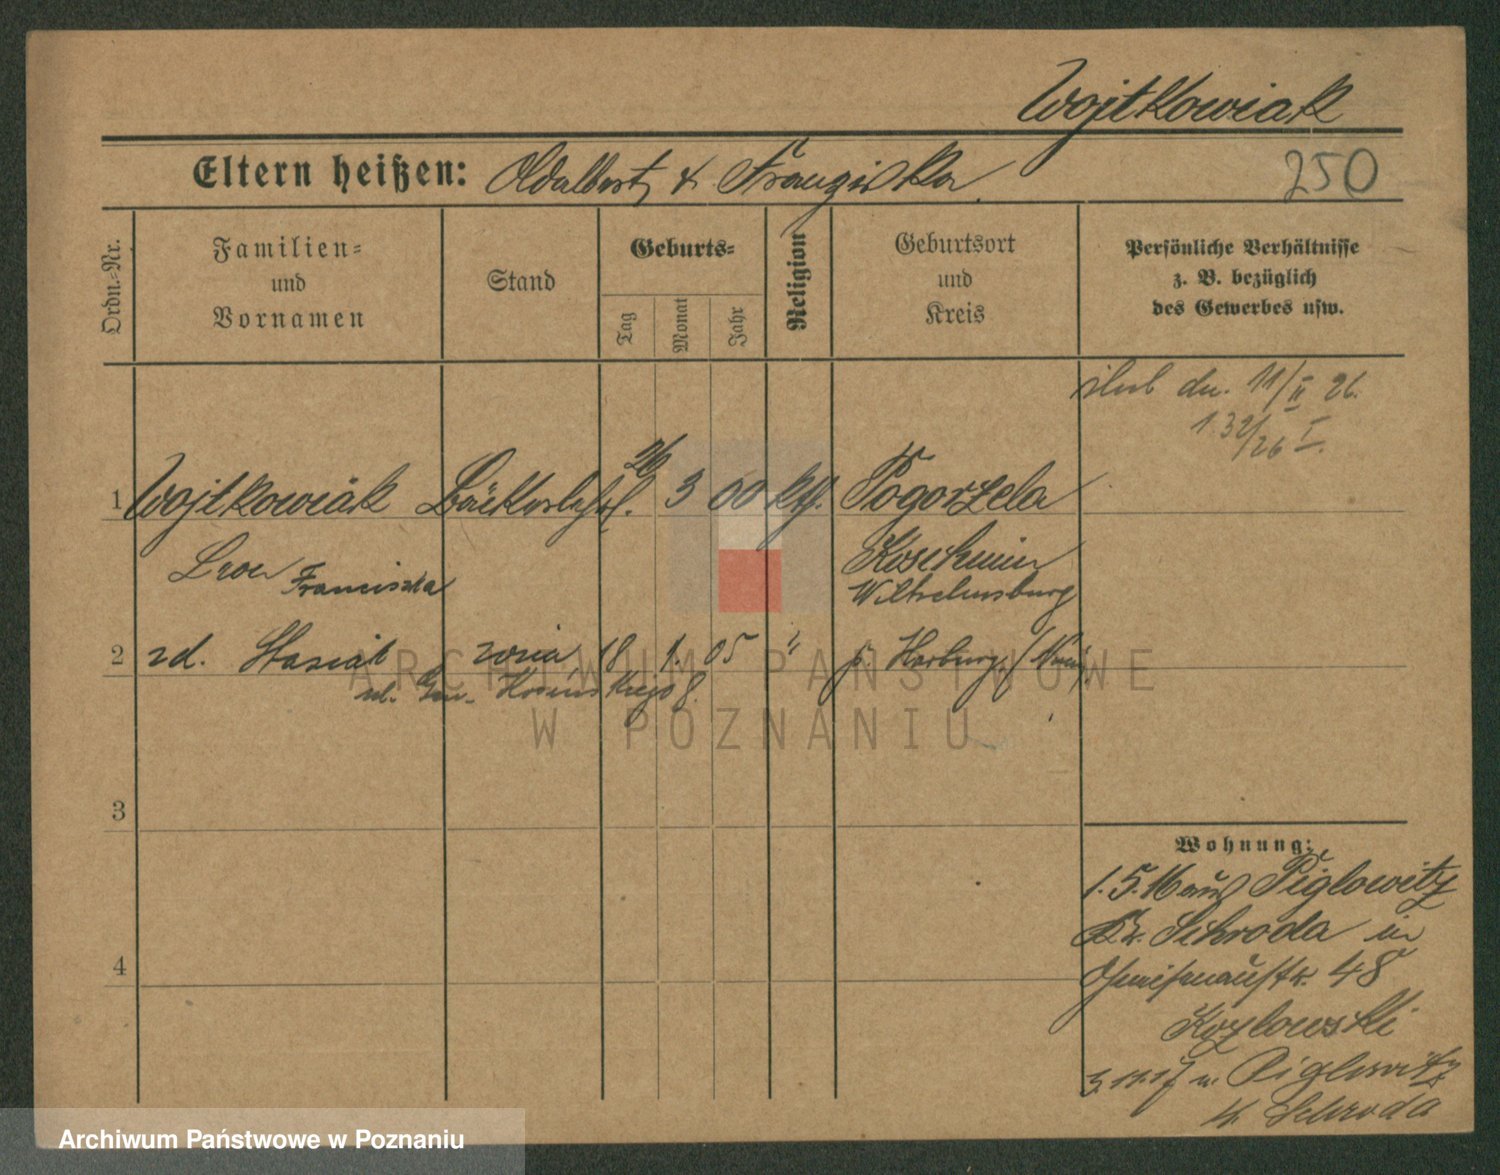 Wojtkowiak
Eltern heißen: Adalbert & Franziska
250
Ordn.-Nr.
Familien-
und
Vornamen
Stand
Geburts-
Tag
Monat
Jahr
Religion
Geburtsort
und
Kreis
Persönliche Verhältnisse
z. B. bezüglich
des Gewerbes usw.
ślub dn. 11/II 26.
1 Wojtkowiak Bäckerlehrl. 26 3 00 kth. Pogorzela
Leon Koschmin
Franciszka Wilhelmsburg
2 zd. Stasiak 18 1. 05 " p. Harburg
ul. Gen. Kosińskiego 8.
3
4
Wohnung:
1.5.16 aus Piglowitz
Kr. Schroda in
Gneisenaustr. 48
Kozlowski
3.11.17 n. Piglowitz
Kr. Schroda
ARCHIWUM PAŃSTWOWE
W POZNANIU
Archiwum Państwowe w Poznaniu